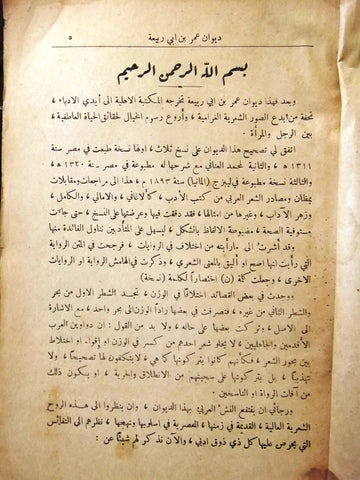 ديوان عمر بن ابي ربيعة ٥
بسم الله الرحمن الرحيم
وبعد فهذا ديوان عمر بن ابي ربيعة تخرجه المكتبة الاهلية الى أيدي الادباء ،
تحفة من أبدع الصور الشعرية الغرامية ، وأروع رسوم الخيال لحقائق الحياة العاطفية ،
بين الرجل والمرأة .
اتفق لي تصحيح هذا الديوان على نسخ ثلاث ، اولها نسخة طبعت في مصر سنة
١٣١١ هـ ، والثانية لمحمد العناني مع شرحها له مطبوعة في مصر سنة ١٣٢٠ هـ ،
والثالثة نسخة مطبوعة في ليبزج (المانيا) سنة ١٨٩٣ م ، هذا الى مراجعات ومقابلات
بمظان ومصادر الشعر العربي من كتب الأدب ، كالاغاني ، والامالي ، والكامل ،
وزهر الآداب ، وغيرها من امثالها ، فقد دققت فيها وعرضتها على النسخ ، حتى جاءت
مستوفية الصحة ، مضبوعة الالفاظ بالشكل ، ليسهل على المتأدبين تناول الفائدة منها
وقد أشرت الى مارأيته من اختلاف في الروايات ، فرجحت في المتن الرواية
التي رأيت انها اصح او أليق بالمعنى الشعري ، وذكرت في الهامش الرواية او الرواية
الاخرى ، وجعلت كلة (ن) اختصاراً لكلمة (نسخة)
ووجدت في بعض القصائد اختلافاً في الوزن ، تجد الشطر الاول من بحر
والشطر الثاني من غيره ، فتصرفت في بعضها راداً الوزن الى بحر واحد ، مع الاشارة
الى الاصل ، وتركت بعضها على حاله ، ولا بد من القول : ان دواوين العرب
الأقدمين والجاهليين ، لا يخلو شعر احدهم من كسر في الوزن او إقواء ، او اختلاط
بين بحور الشعر ، فكأنهم كانوا يقولونها كما هي ، لا يتكلفون لها تصحيحاً ، ولا
تهذيباً ، بل يتركونها على سجيتهم من الانطلاق والحرية ، او يكون ذلك
من آفات الرواة او الناسخين .
ورجائي ان ينتفع النشء العربي بهذا الديوان ، وان ينظروا الى هذه الروح
الشعرية العالية ، القديمة في زمنها ، العصرية في اسلوبها ونهجها ، نظرهم الى النفائس
التي يحرص عليها كل ذي ذوق ادبي ، والآن نذكر لهم شيئاً عن :